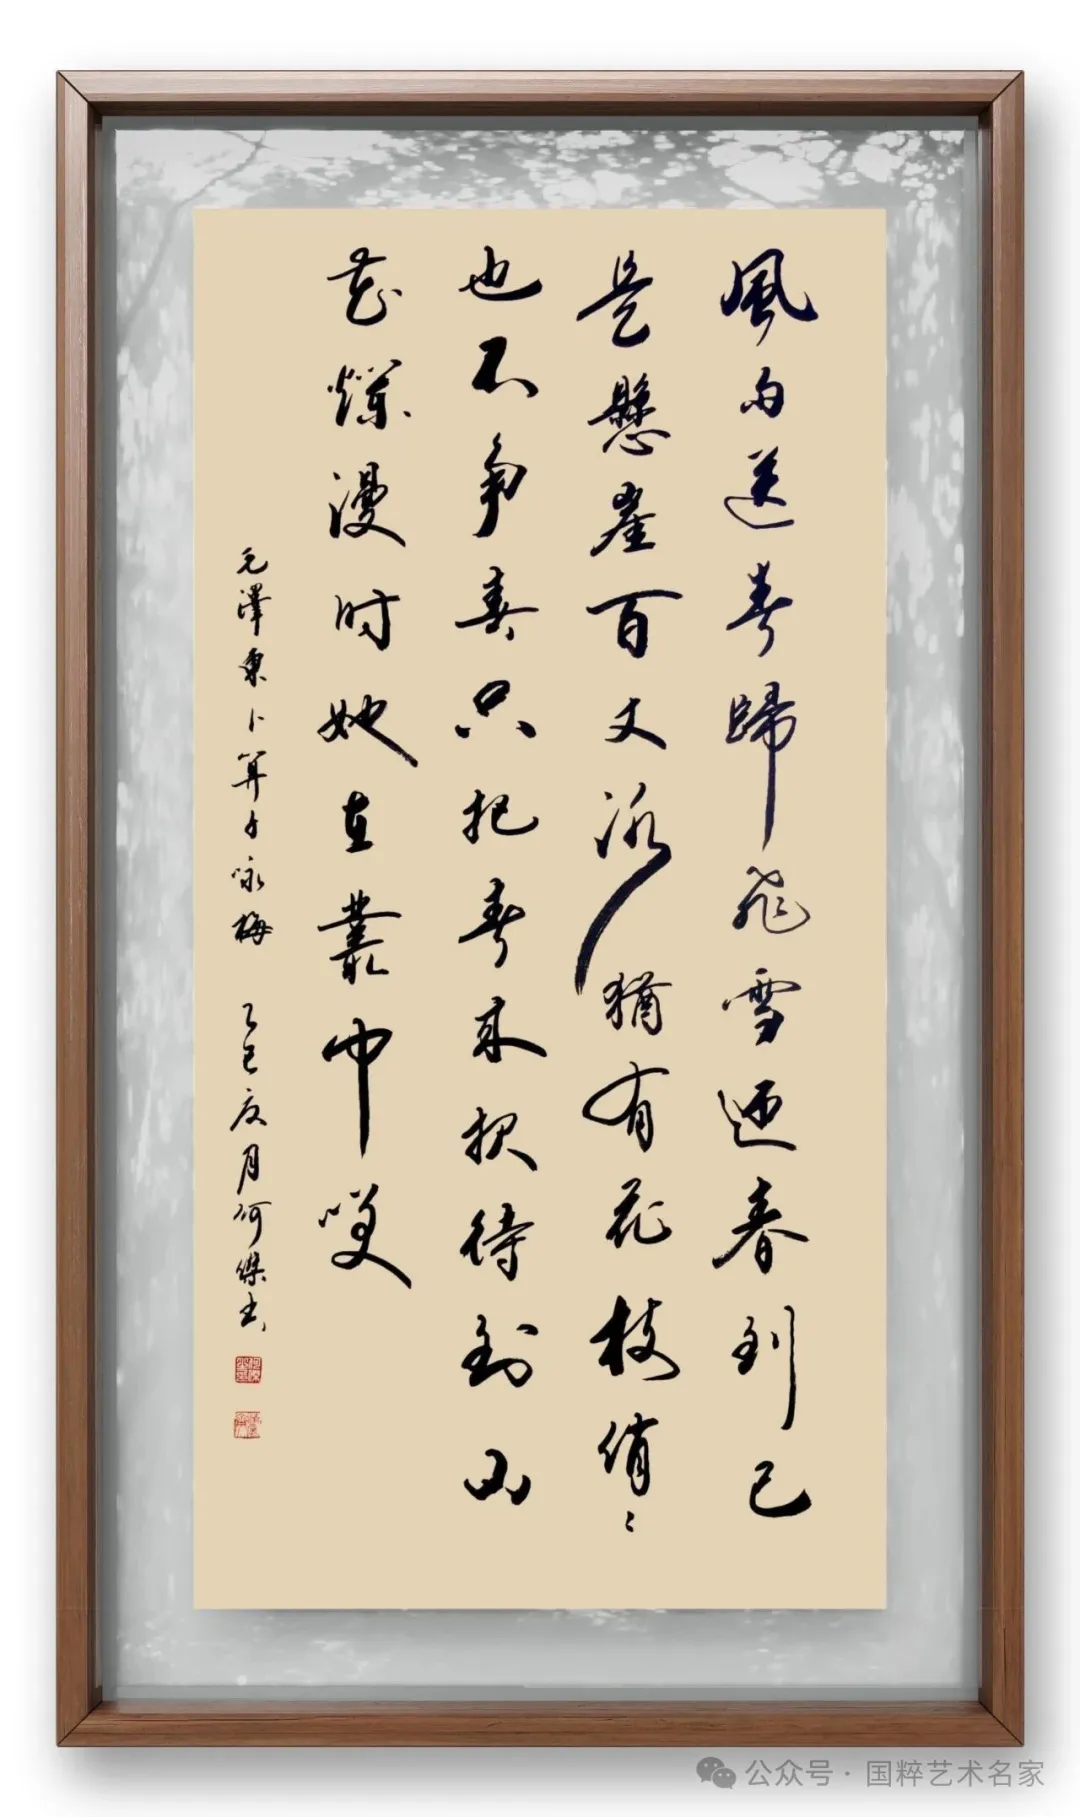 風雨送春歸飛雪迎春到已
是懸崖百丈冰猶有花枝俏〻
也不争春只把春来报待到山
花爛漫时她在叢中咲
毛澤東卜算子咏梅 乙巳夏月何傑书
公众号·国粹艺术名家